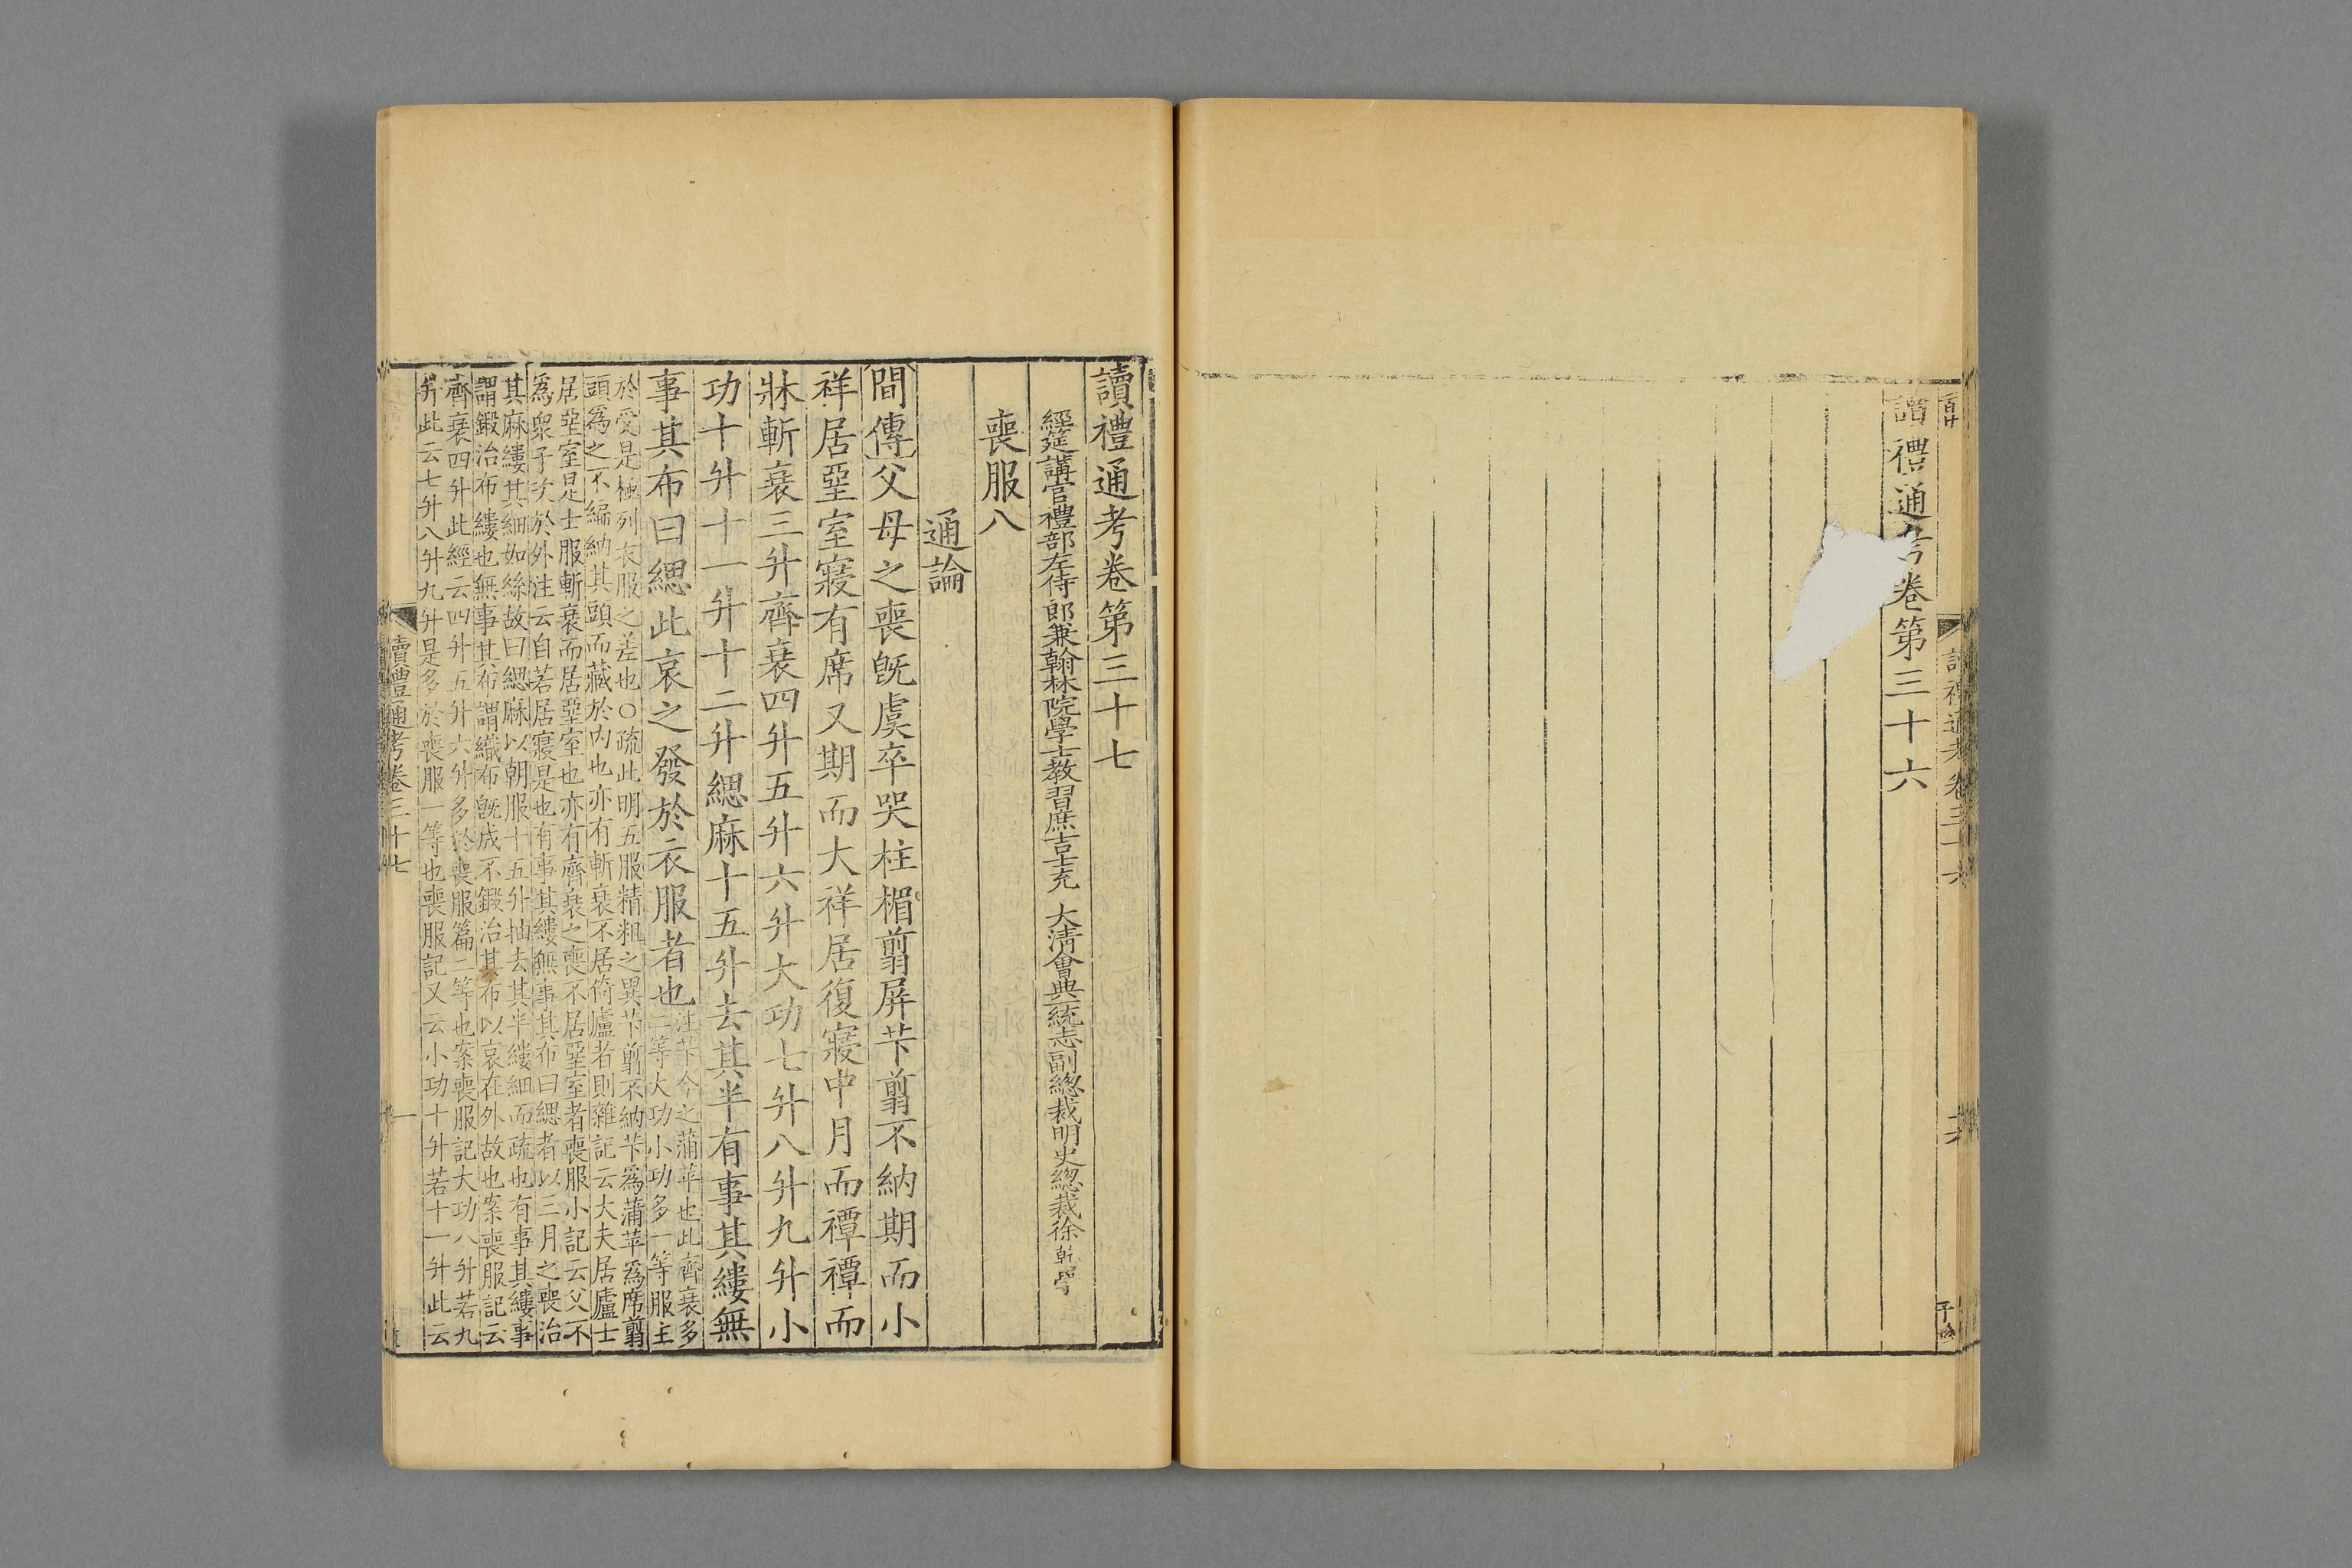 讀禮通考卷第三十六
讀禮通考卷第三十七
經筵講官禮部左侍郎兼翰林院學士教習庶吉士充 大清會典一統志副總裁明史總裁徐乾學
喪服八
通論
間傳父母之喪旣虞卒哭柱楣翦屏苄翦不納期而小
祥居堊室寢有席又期而大祥居復寢中月而禫禫而
牀斬衰三升齊衰四升五升六升大功七升八升九升小
功十升十一升十二升緦麻十五升去其半有事其縷無
事其布曰緦此哀之發於衣服者也
注苄今之蒲苹也此齊衰多
二等大功小功多一等服主
於受是極列衣服之差也○疏此明五服精粗之異苄翦不納苄爲蒲苹爲席翦
頭爲之不編納其頭而藏於内也亦有斬衰不居倚廬者則雜記云大夫居廬士
居堊室是士服斬衰而居堊室也亦有齊衰之喪不居堊室者喪服小記云父不
爲衆子次於外注云自若居寢是也有事其縷無事其布曰緦者以三月之喪治
其麻縷其細如絲故曰緦麻以朝服十五升抽去其半縷細而疏也有事其縷事
謂鍛治布縷也無事其布謂織布旣成不鍛治其布以哀在外故也案喪服記云
齊衰四升此經云四升五升六升多於喪服篇二等也案喪服記大功八升若九
升此云七升八升九升是多於喪服一等也喪服記又云小功十升若十一升此云
讀禮通考卷三十七
一